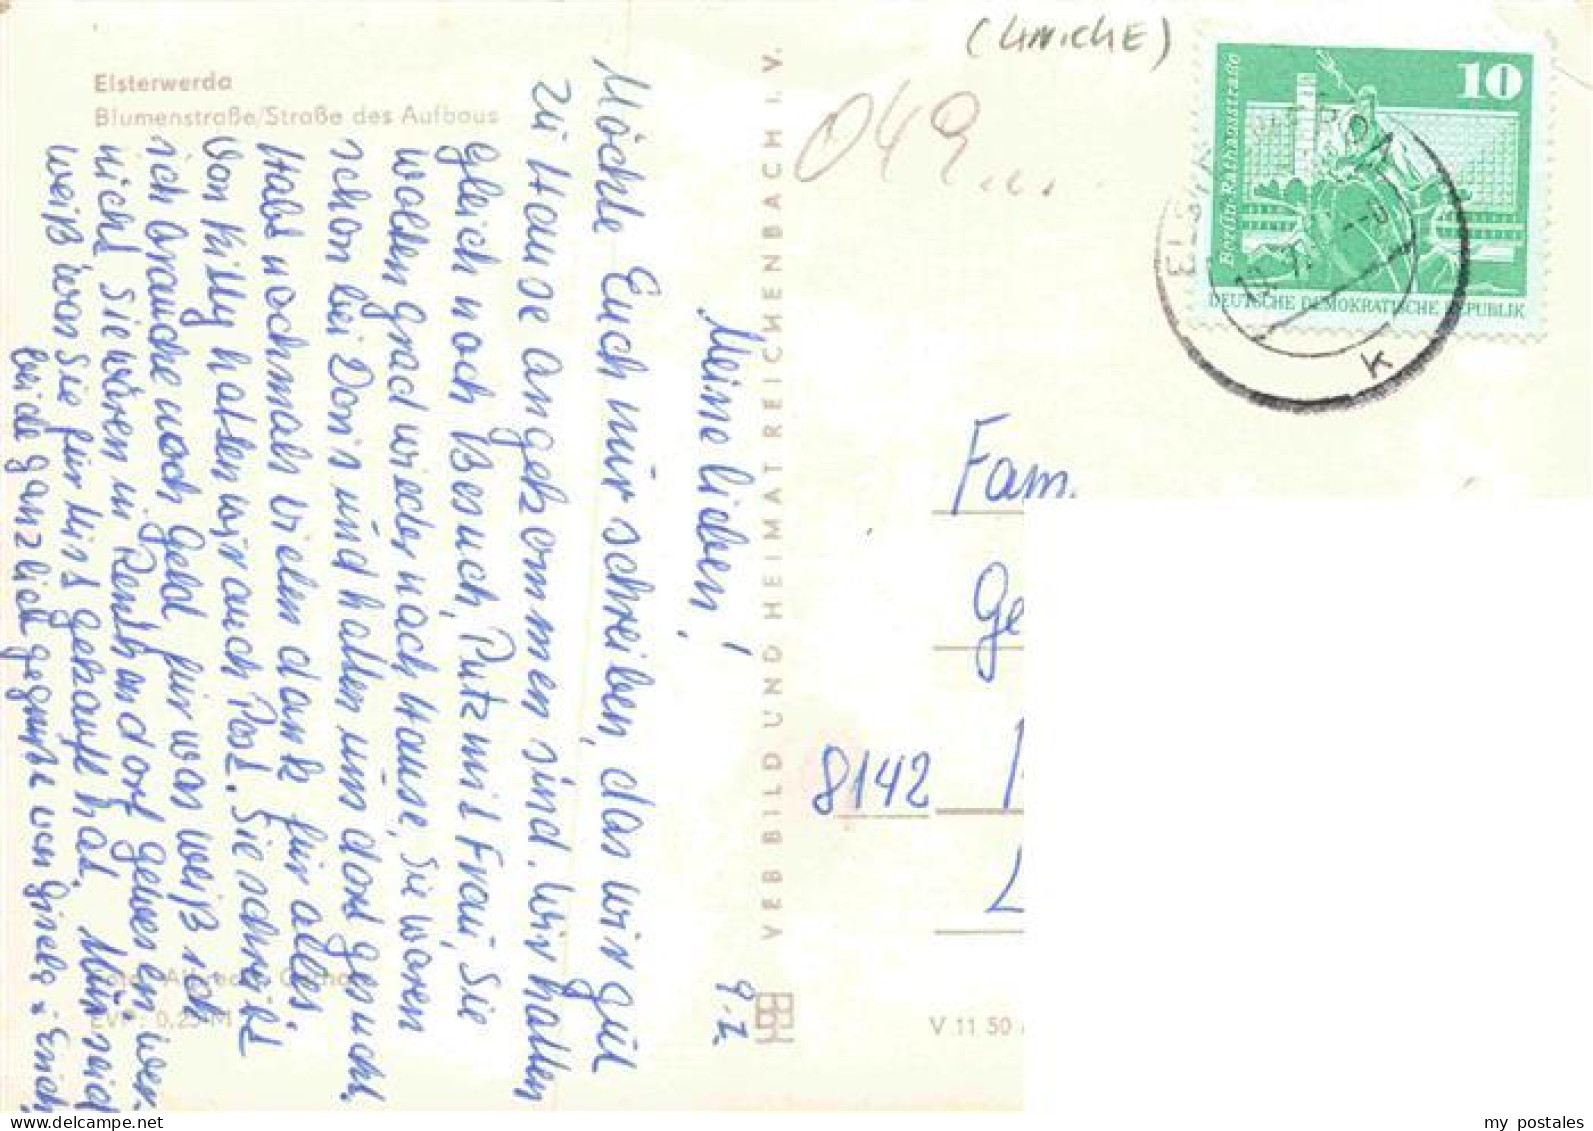 Elsterwerda
Blumenstraße/Straße des Aufbaus
9.7.
Meine lieben!
Möchte Euch nur schreiben, das wir gut
zu Hause angekommen sind. Wir hatten
gleich noch Besuch, Putz mit Frau, Sie
wolten grad wieder nach Hause, Sie waren
schon bei Doris und hatten uns dort gesucht.
Habt nochmals vielen dank für alles.
Von Killy hatten wir auch Post. Sie schreibt
ich brauche noch Geld für was weiß ich
nicht. Sie wären in Renthendorf gewesen wer
weiß was Sie für uns gekauft hat. Nun seid
beide ganz lich gegrüßt von Gisela + Erich
EVP 0,25 M
VEB BILD UND HEIMAT REICHENBACH I. V.
V 11 50
049...
10
Berlin-Rathausstraße
DEUTSCHE DEMOKRATISCHE REPUBLIK
k
Fam.
Ge
8142
my postales